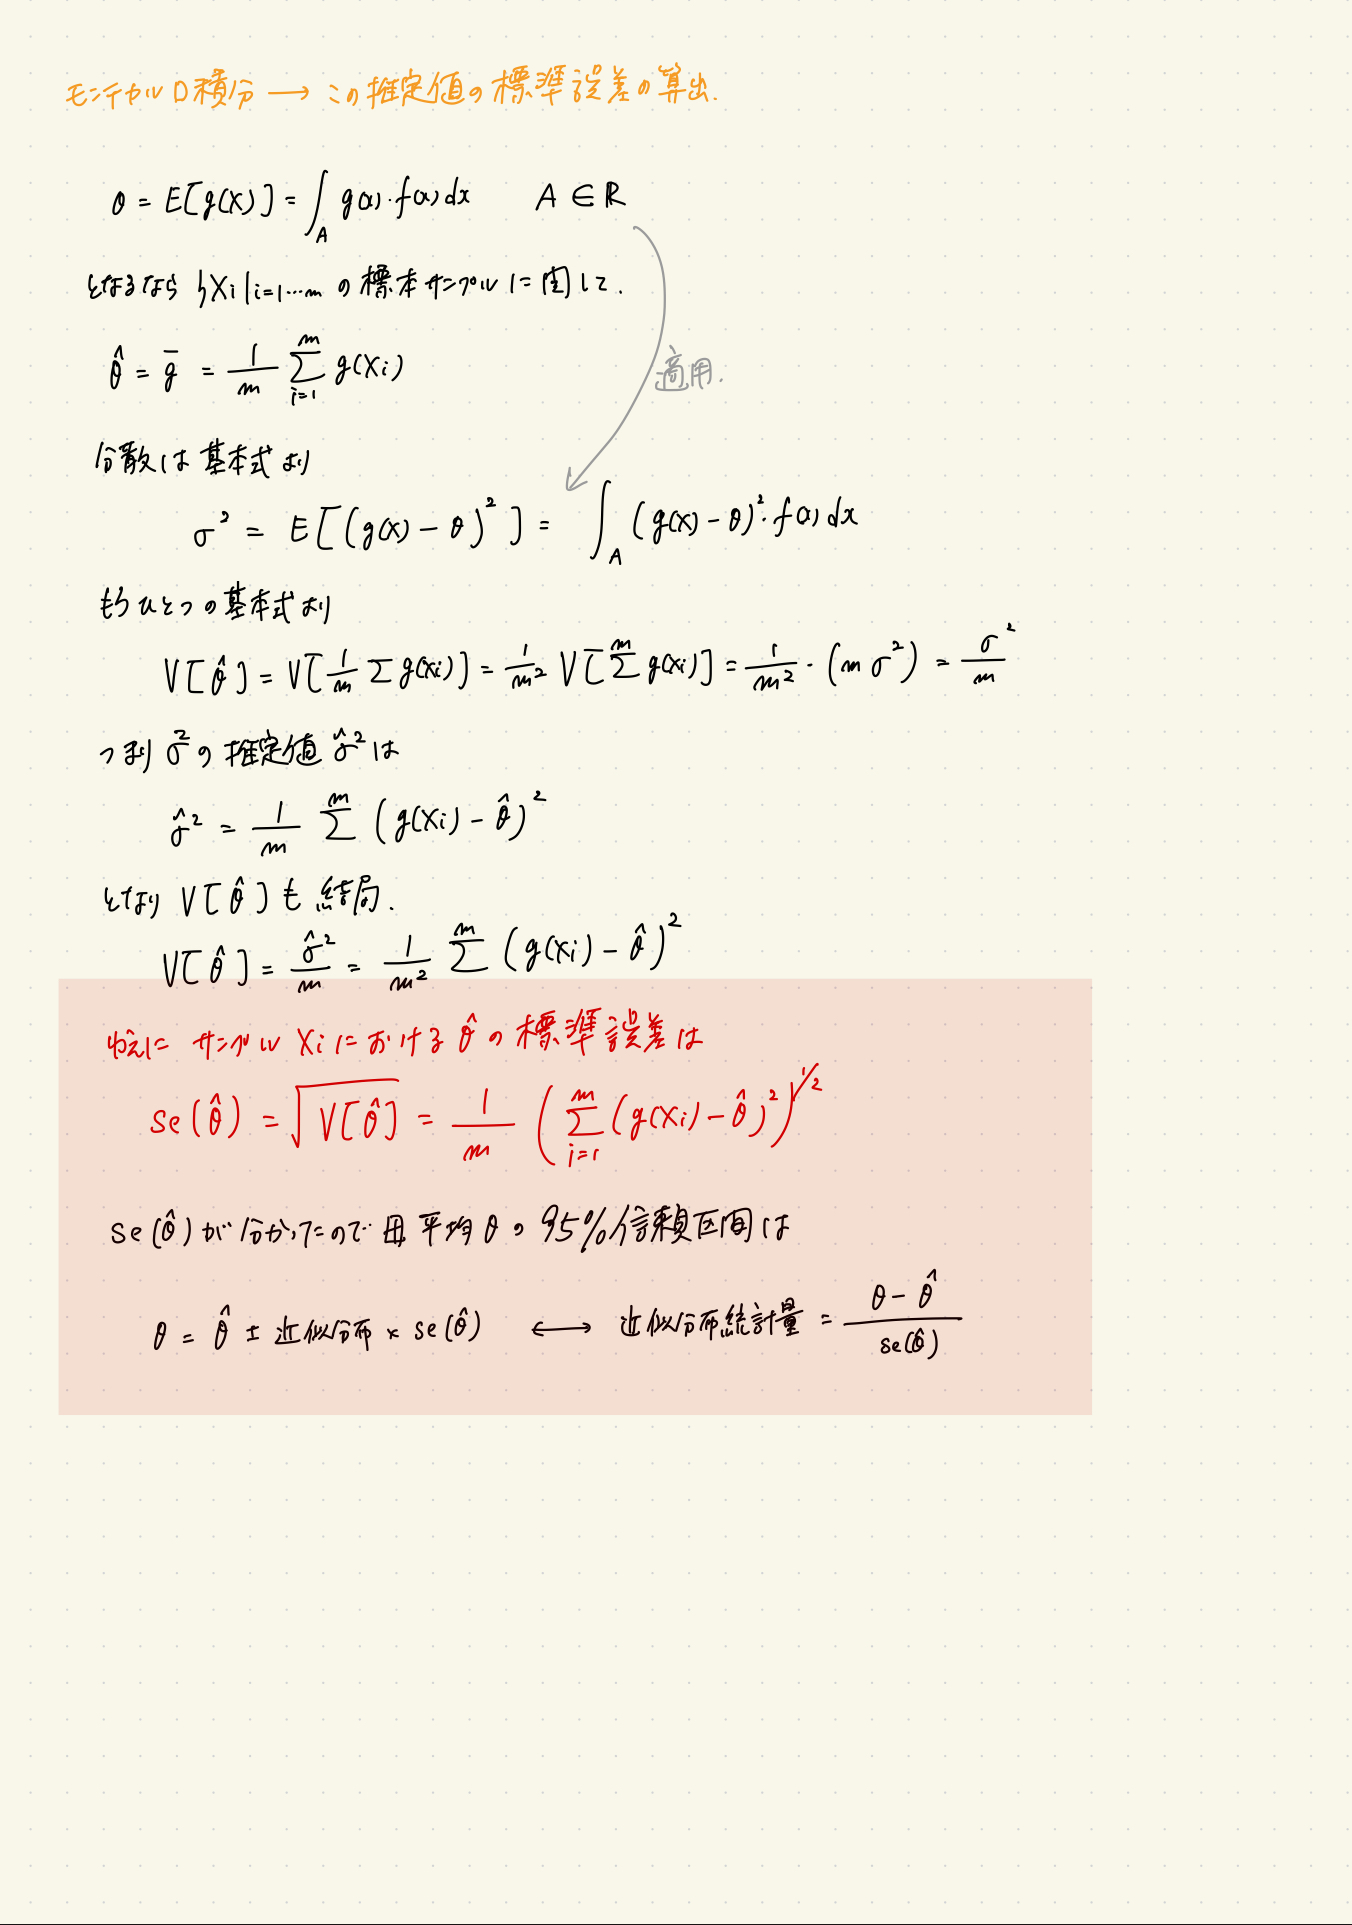 モンテカルロ積分 → この推定値の標準誤差の算出.
θ = E[g(X)] = ∫_A g(x)・f(x)dx　A ∈ ℝ
となるなら {Xi|i=1…m の標本サンプルに関して.
適用.
θ̂ = ḡ = 1/m Σ_{i=1}^{m} g(Xi)
分散は基本式より
σ² = E[(g(X) − θ)²] = ∫_A (g(x) − θ)²・f(x)dx
もうひとつの基本式より
V[θ̂] = V[1/m Σ g(xi)] = 1/m² V[Σ^m g(xi)] = 1/m²・(m σ²) = σ²/m
つまり σ²の推定値 σ̂²は
σ̂² = 1/m Σ^m (g(Xi) − θ̂)²
となり V[θ̂]も結局.
V[θ̂] = σ̂²/m = 1/m² Σ^m (g(Xi) − θ̂)²
ゆえに サンプル Xiにおける θ̂ の標準誤差は
se(θ̂) = √V[θ̂] = 1/m (Σ_{i=1}^{m} (g(Xi) − θ̂)²)^{1/2}
se(θ̂)が分かったので 母平均θの95%信頼区間は
θ = θ̂ ± 近似分布 × se(θ̂) ⟷ 近似分布統計量 = (θ − θ̂)/se(θ̂)